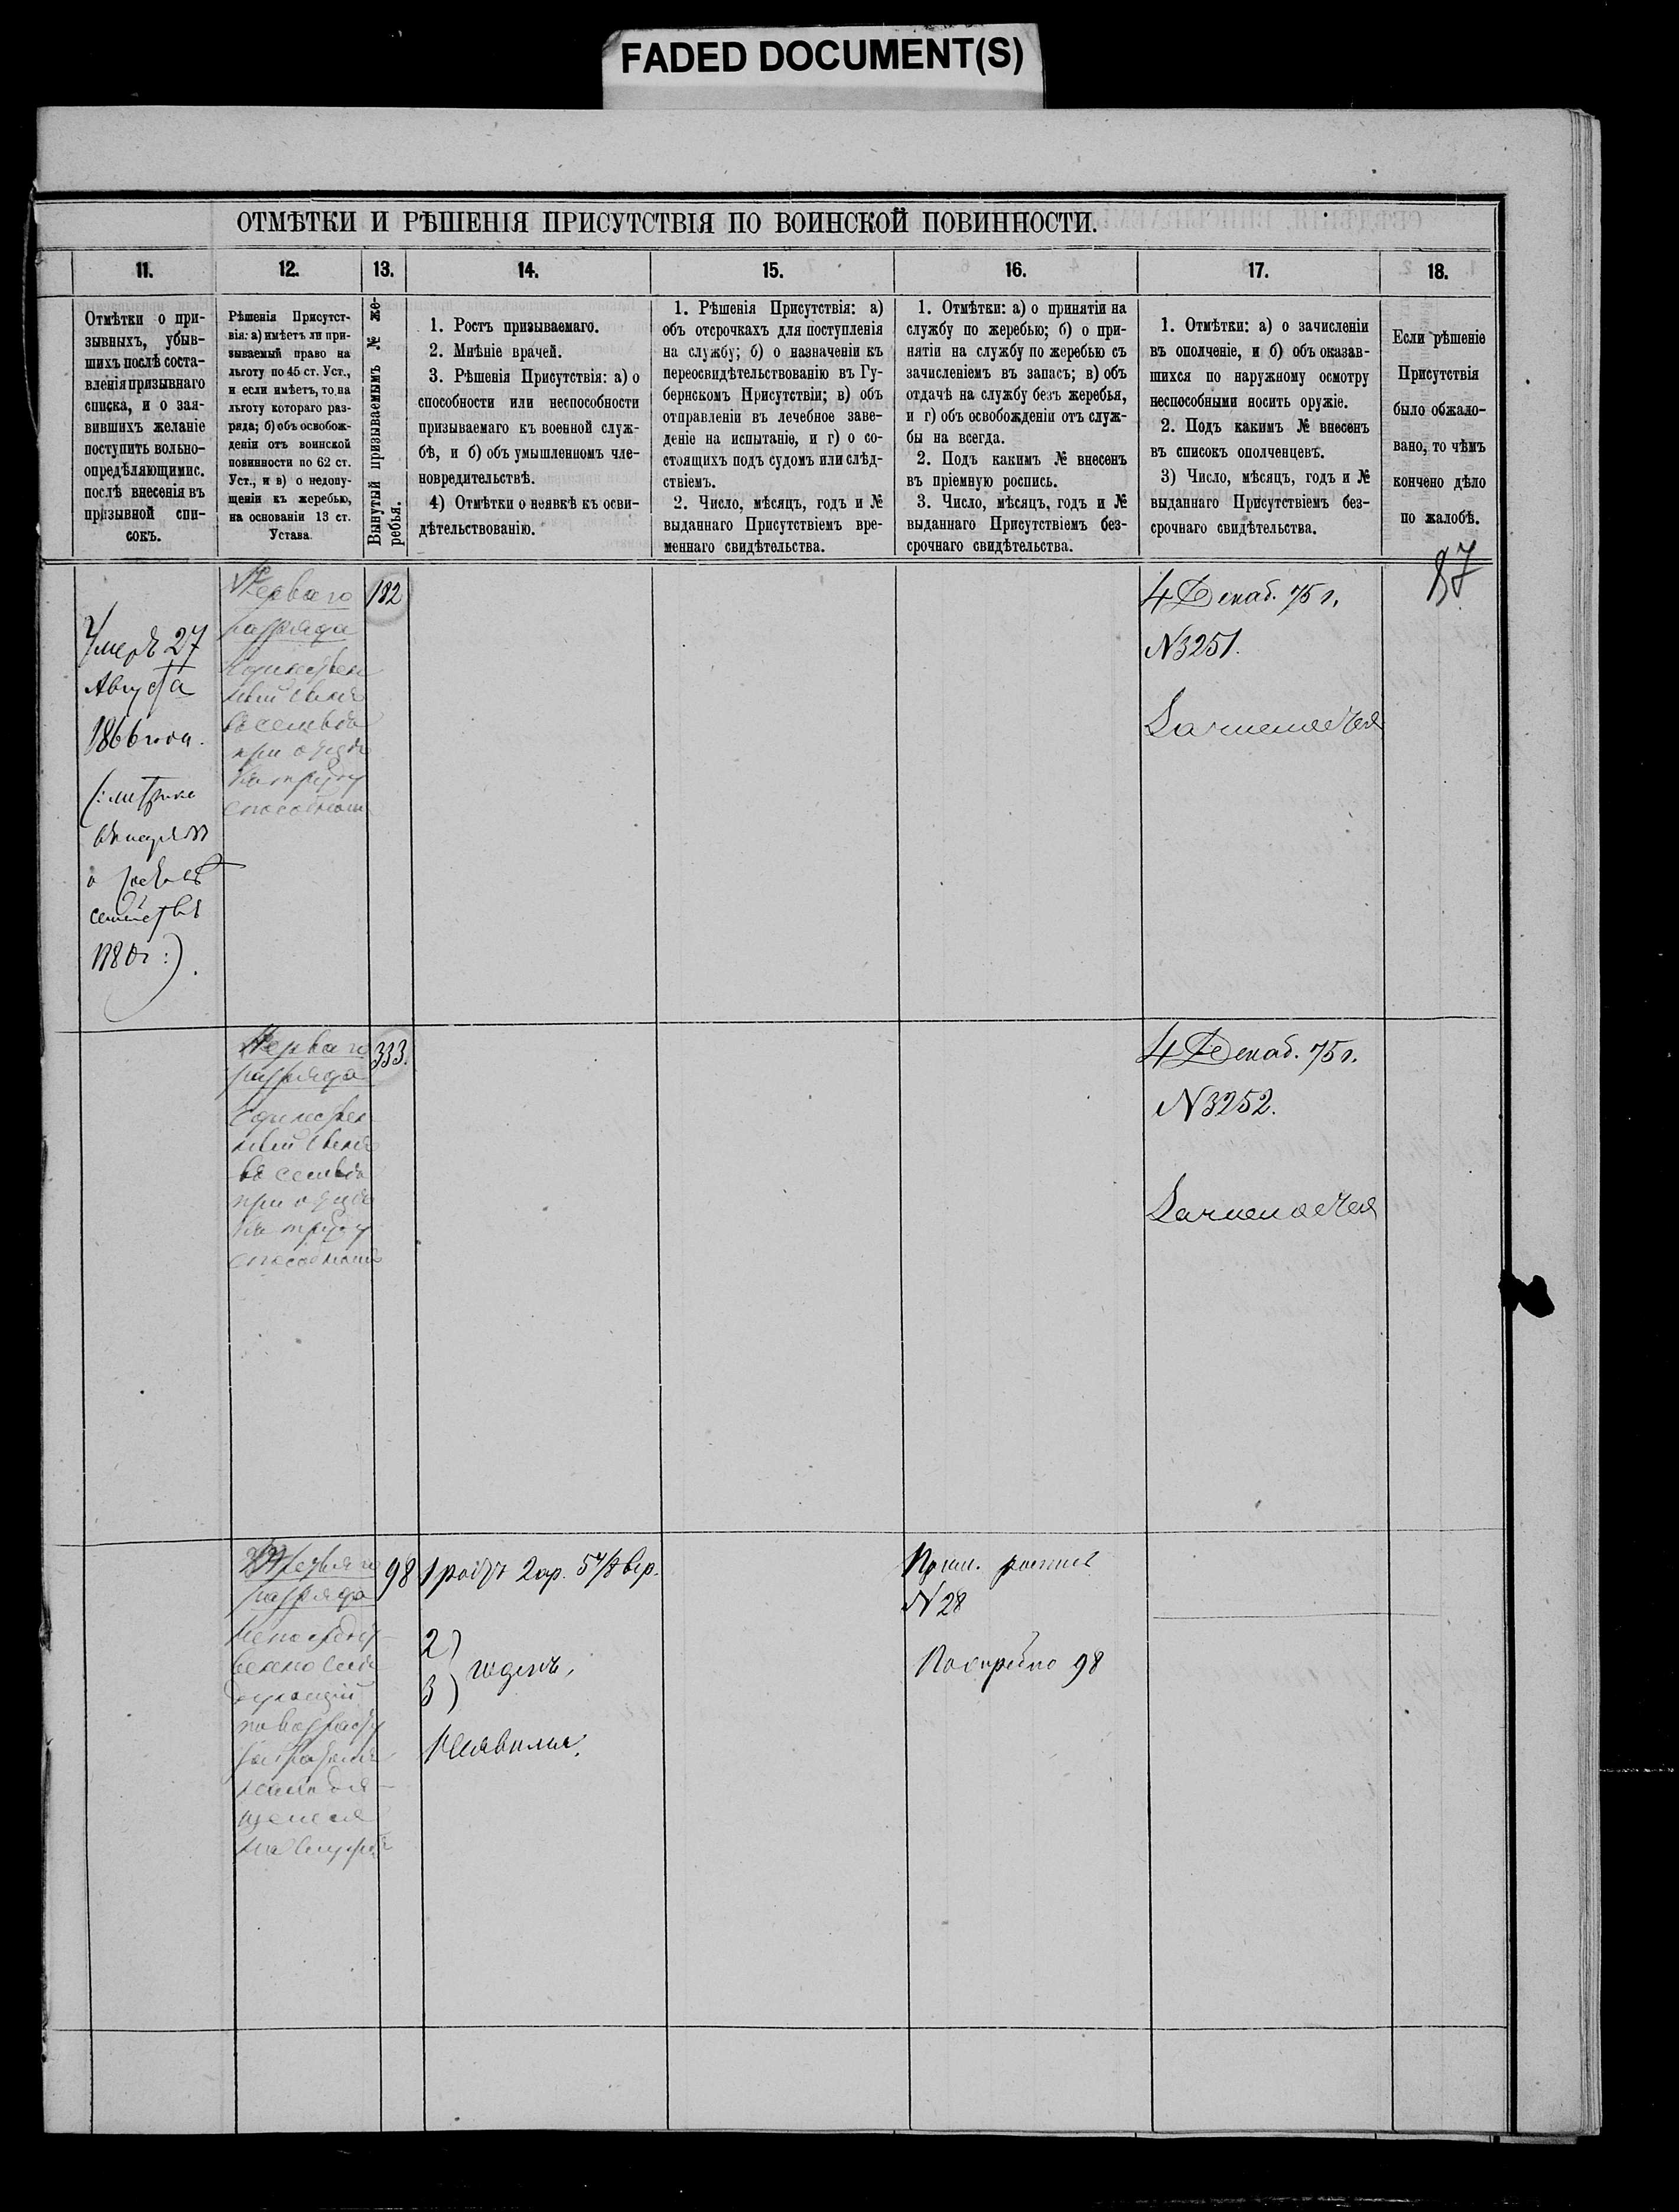 FADED DOCUMENT(S)
ОТМѢТКИ И РѢШЕНІЯ ПРИСУТСТВІЯ ПО ВОИНСКОЙ ПОВИННОСТИ.
11.
Отмѣтки о при-
зывныхъ, убыв-
шихъ послѣ соста-
вленія призывнаго
списка, и о зая-
вившихъ желаніе
поступить вольно-
опредѣляющимис.
послѣ внесенія въ
призывной спи-
сокъ.
12.
Рѣшенія Присутст-
вія: а) имѣетъ ли при-
зываемый право на
льготу по 45 ст. Уст.,
и если имѣетъ, то на
льготу котораго раз-
ряда; б) объ освобож-
деніи отъ воинской
повинности по 62 ст.
Уст., и в) о недопу-
щеніи къ жеребью,
на основаніи 13 ст.
Устава
13.
Вынутый призываемымъ № же-
ребья.
14.
1. Ростъ призываемаго.
2. Мнѣніе врачей.
3. Рѣшенія Присутствія: а) о
способности или неспособности
призываемаго къ военной служ-
бѣ, и б) объ умышленномъ чле-
новредительствѣ.
4) Отмѣтки о неявкѣ къ осви-
дѣтельствованію.
15.
1. Рѣшенія Присутствія: а)
объ отсрочкахъ для поступленія
на службу; б) о назначеніи къ
переосвидѣтельствованію въ Гу-
бернскомъ Присутствіи; в) объ
отправленіи въ лечебное заве-
деніе на испытаніе, и г) о со-
стоящихъ подъ судомъ или слѣд-
ствіемъ.
2. Число, мѣсяцъ, годъ и №
выданнаго Присутствіемъ вре-
меннаго свидѣтельства.
16.
1. Отмѣтки: а) о принятіи на
службу по жеребью; б) о при-
нятіи на службу по жеребью съ
зачисленіемъ въ запасъ; в) объ
отдачѣ на службу безъ жеребья,
и г) объ освобожденіи отъ служ-
бы на всегда.
2. Подъ какимъ № внесенъ
въ пріемную роспись.
3. Число, мѣсяцъ, годъ и №
выданнаго Присутствіемъ без-
срочнаго свидѣтельства.
17.
1. Отмѣтки: а) о зачисленіи
въ ополченіе, и б) объ оказав-
шихся по наружному осмотру
неспособными носить оружіе.
2. Подъ какимъ № внесенъ
въ списокъ ополченцевъ.
3) Число, мѣсяцъ, годъ и №
выданнаго Присутствіемъ без-
срочнаго свидѣтельства.
18.
Если рѣшеніе
Присутствія
было обжало-
вано, то чѣмъ
кончено дѣло
по жалобѣ.
87
Умеръ 27
Августа
1866 года.
(: метрика
о
семействѣ
:).
Перваго
разряда
Единствен
ный сынъ
въ семьѣ
при отцѣ
къ труду
способномъ
182
4 Декаб. 75 г.
N 3251.
Перваго
разряда
Единствен-
ный сынъ
въ семьѣ
при отцѣ
къ труду
способномъ
333.
4 Декаб. 75 г.
N 3252.
Третьяго
разряда
Непосредст-
венно слѣ-
дующій
по возрасту
за братомъ
находя-
щемся
на службѣ
98
1 ростъ 2 ар. 5 4/8 вер.
2)
3) годенъ,
Пріем. роспись
N 28
По жребію 98